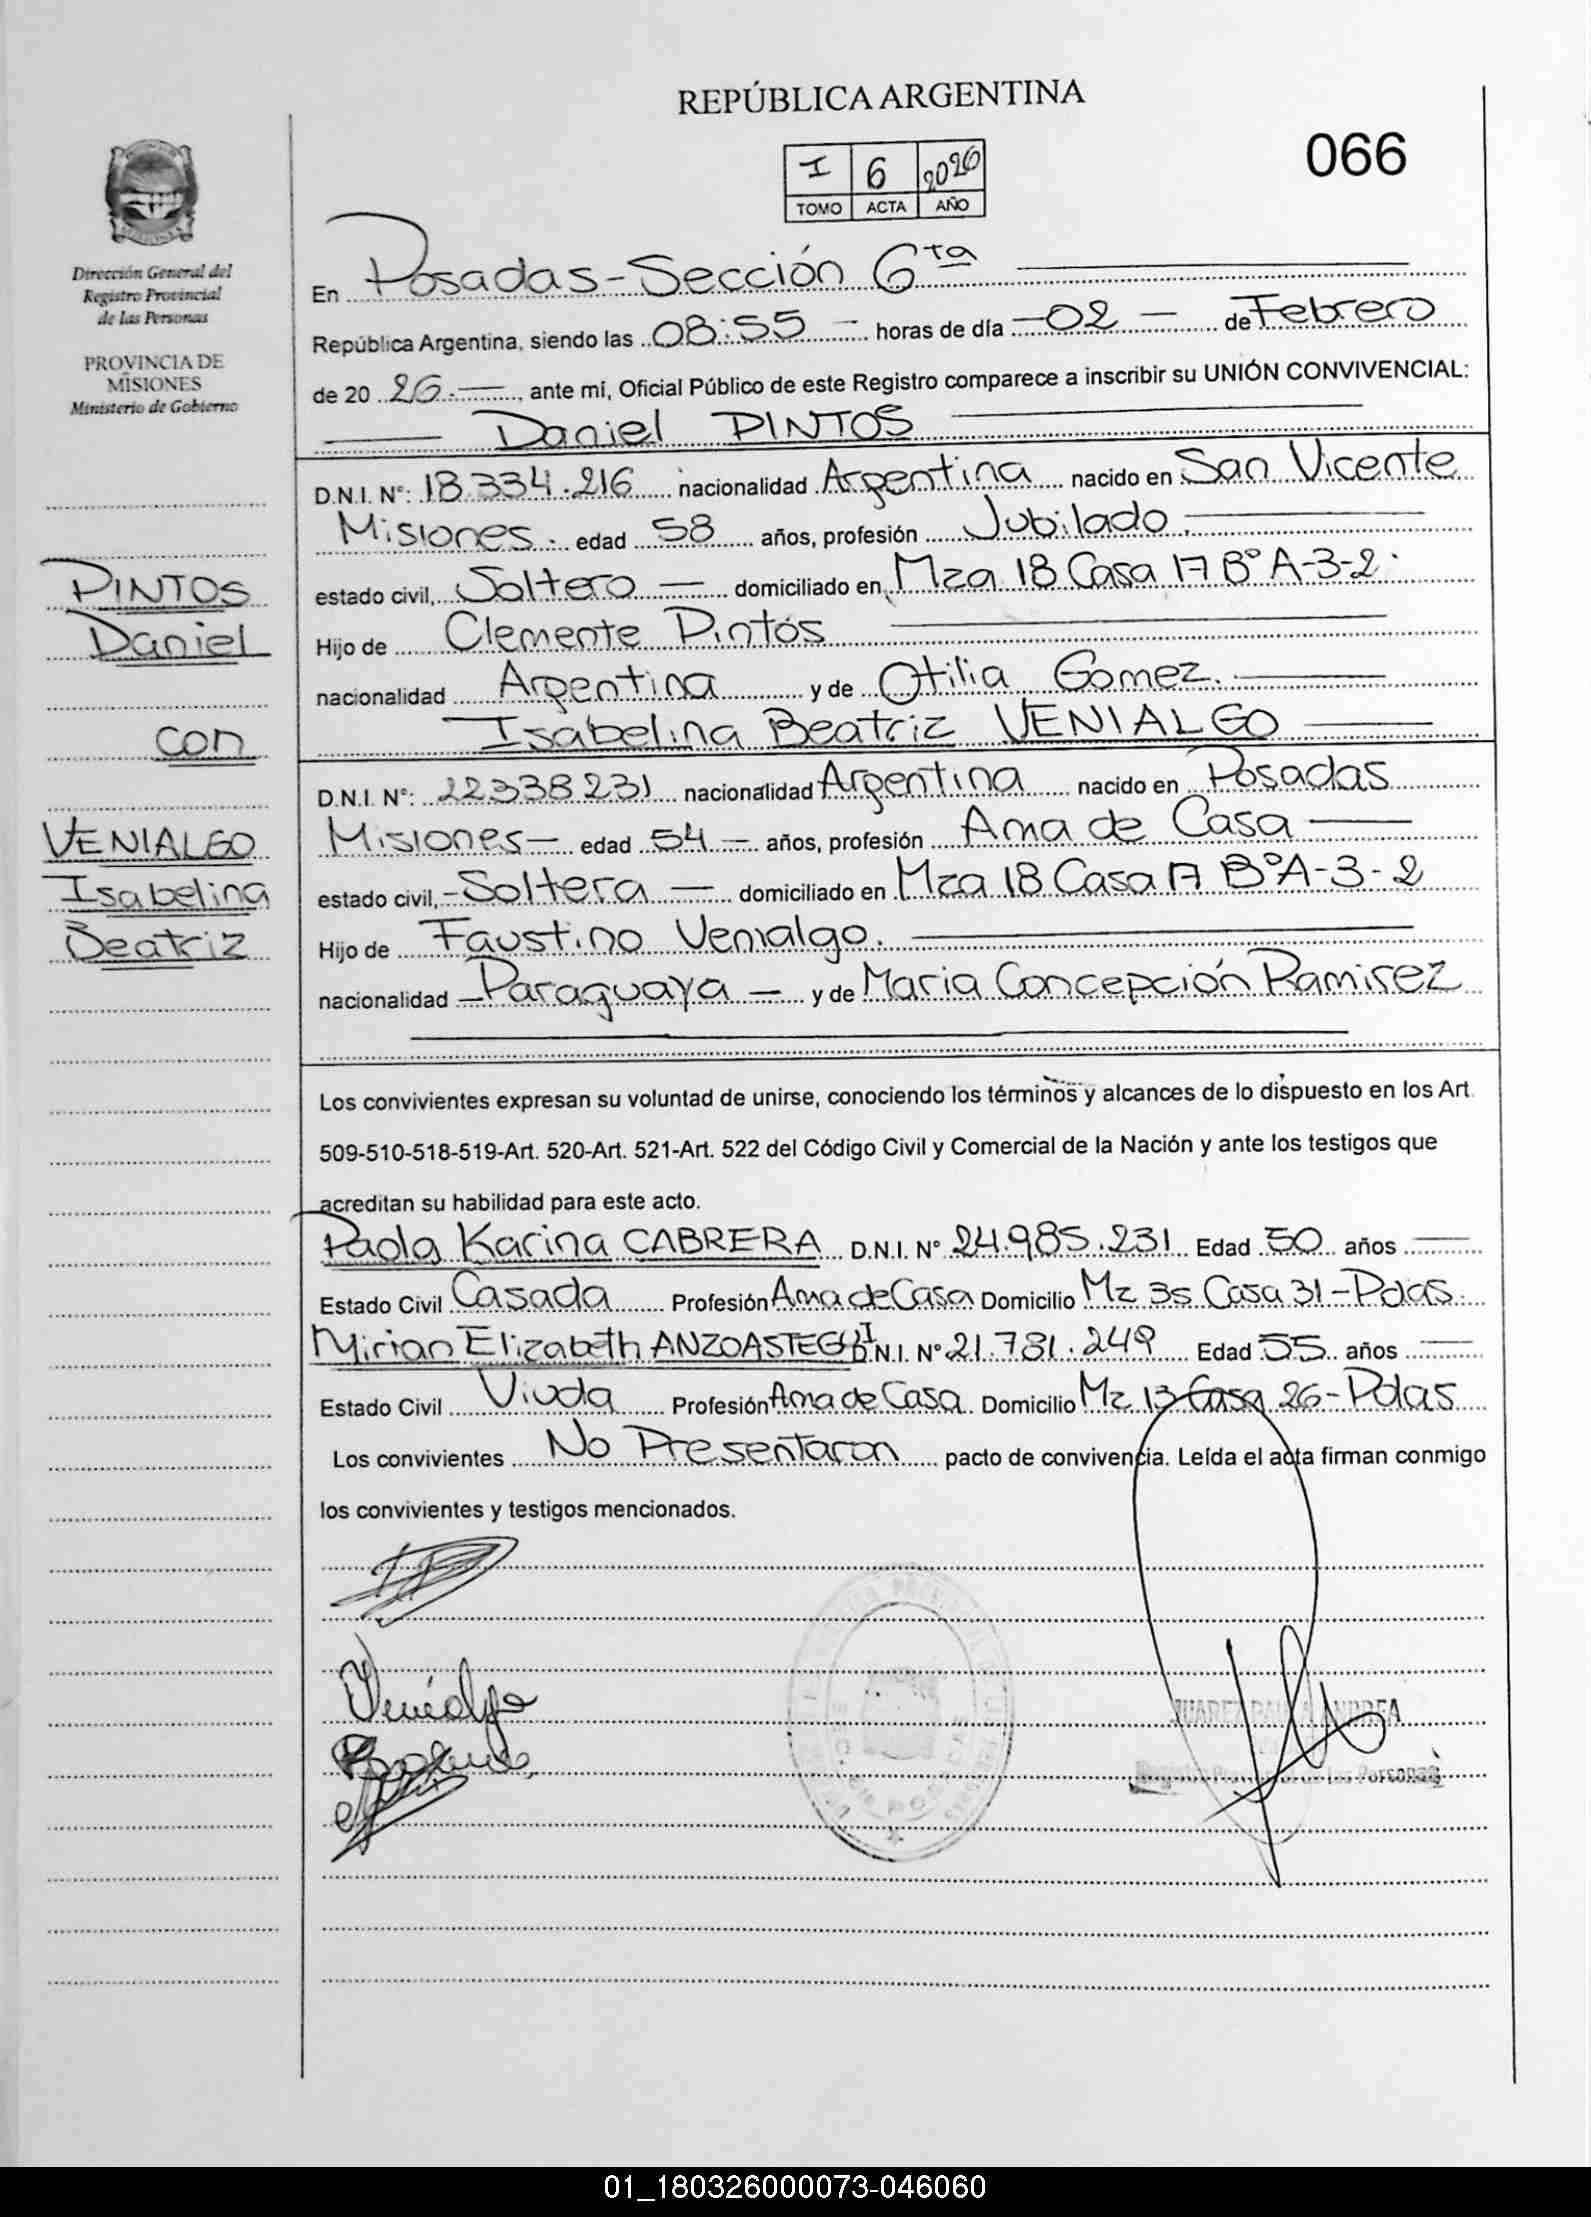 REPÚBLICA ARGENTINA
066
I 6 2026
TOMO ACTA AÑO
Dirección General del
Registro Provincial
de las Personas
PROVINCIA DE
MISIONES
Ministerio de Gobierno
PINTOS
Daniel
con
VENIALGO
Isabelina
Beatriz
En Posadas-Sección 6ta
República Argentina, siendo las 08:55 - horas de día -02- de Febrero
de 20 26.-, ante mí, Oficial Público de este Registro comparece a inscribir su UNIÓN CONVIVENCIAL:
Daniel PINTOS
D.N.I. N°: 18.334.216 nacionalidad Argentina nacido en San Vicente
Misiones. edad 58 años, profesión Jubilado.
estado civil, Soltero - domiciliado en, Mza 18 Casa 17 B° A-3-2.
Hijo de Clemente Pintos
nacionalidad Argentina y de Otilia Gomez.
Isabelina Beatriz VENIALGO
D.N.I. N°: 22338231 nacionalidad Argentina nacido en Posadas
Misiones- edad 54 - años, profesión Ama de Casa
estado civil, -Soltera - domiciliado en Mza 18 Casa 17 B°A-3-2
Hijo de Faustino Venialgo.
nacionalidad -Paraguaya - y de Maria Concepción Ramirez
Los convivientes expresan su voluntad de unirse, conociendo los términos y alcances de lo dispuesto en los Art.
509-510-518-519-Art. 520-Art. 521-Art. 522 del Código Civil y Comercial de la Nación y ante los testigos que
acreditan su habilidad para este acto.
Paola Karina CABRERA D.N.I. N° 24.985.231 Edad 50 años
Estado Civil Casada Profesión Ama de Casa Domicilio Mz 35 Casa 31-Pdas.
Mirian Elizabeth ANZOASTEGUI D.N.I. N° 21.781.249 Edad 55 años
Estado Civil Viuda Profesión Ama de Casa Domicilio Mz 13 Casa 26-Pdas
Los convivientes No Presentaron pacto de convivencia. Leída el acta firman conmigo
los convivientes y testigos mencionados.
Venialgo
JUAREZ PAULA ANDREA
Registro Provincial de las Personas
01_180326000073-046060